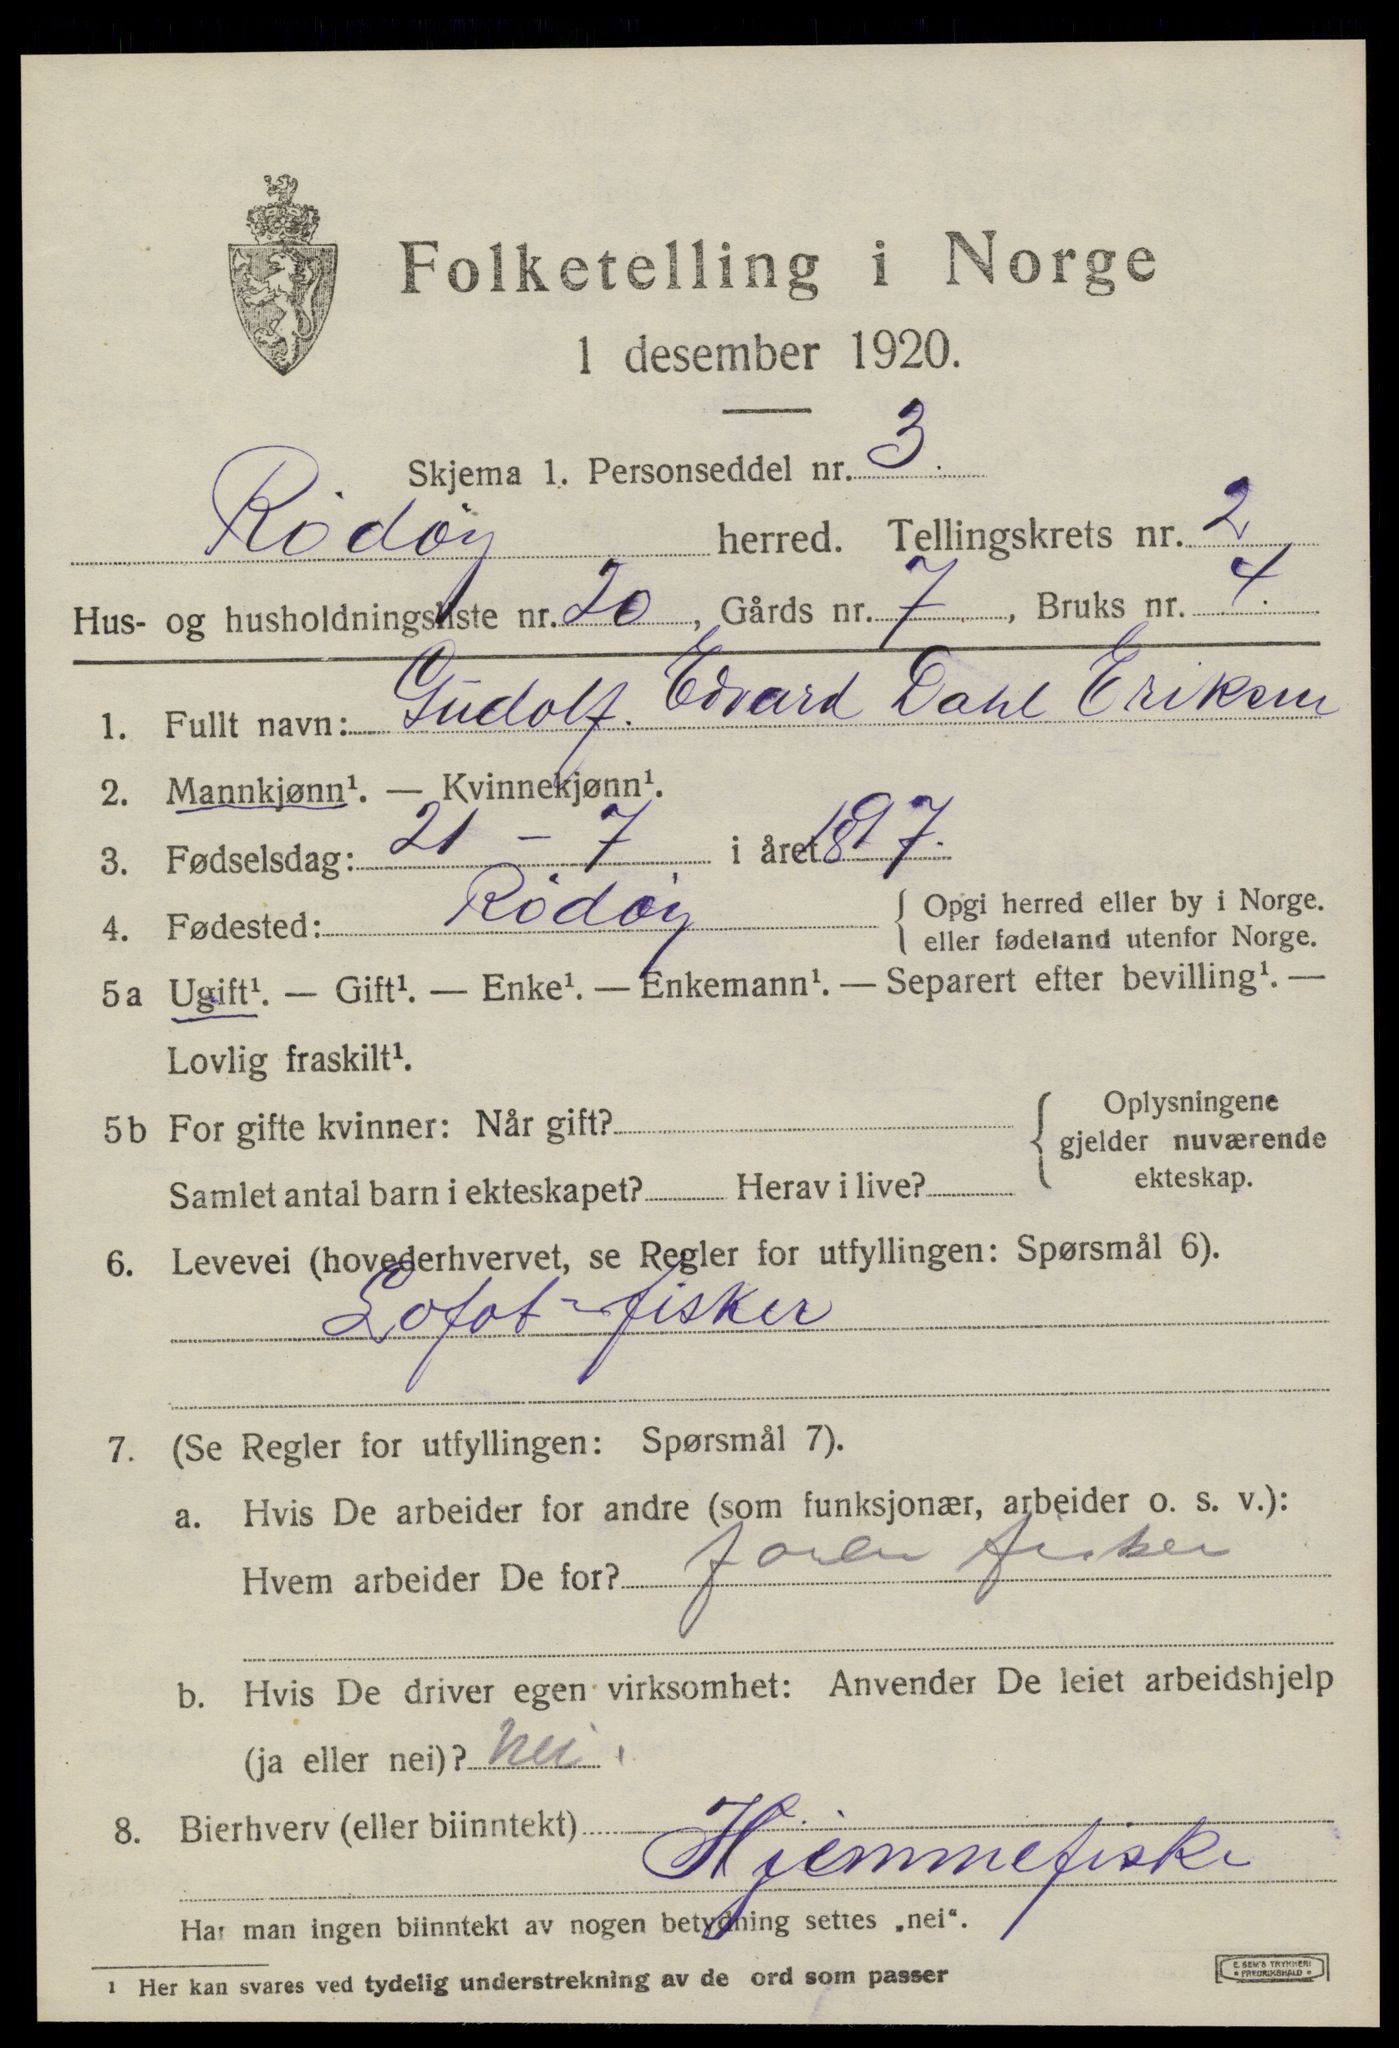 Folketelling i Norge
1 desember 1920.
Skjema 1. Personseddel nr. 3.
Rødøy herred. Tellingskrets nr. 2
Hus- og husholdningsliste nr. 20, Gårds nr. 7, Bruks nr. 4.
1. Fullt navn: Gudolf. Edvard Dahl Eriksen
2. Mannkjønn¹. — Kvinnekjønn¹.
3. Fødselsdag: 21 - 7 i året 1897.
4. Fødested: Rødøy { Opgi herred eller by i Norge.
eller fødeland utenfor Norge.
5a Ugift¹. — Gift¹. — Enke¹. — Enkemann¹. — Separert efter bevilling¹. —
Lovlig fraskilt¹.
5b For gifte kvinner: Når gift? { Oplysningene
gjelder nuværende
ekteskap.
Samlet antal barn i ekteskapet? Herav i live?
6. Levevei (hovederhvervet, se Regler for utfyllingen: Spørsmål 6).
Lofot-fisker
7. (Se Regler for utfyllingen: Spørsmål 7).
a. Hvis De arbeider for andre (som funksjonær, arbeider o. s. v.):
Hvem arbeider De for? fisker
b. Hvis De driver egen virksomhet: Anvender De leiet arbeidshjelp
(ja eller nei)? Nei.
8. Bierhverv (eller biinntekt)
Hjemmefiske
Har man ingen biinntekt av nogen betydning settes „nei“.
¹ Her kan svares ved tydelig understrekning av de ord som passer
E. SEM'S TRYKKERI
• FREDRIKSHALD •